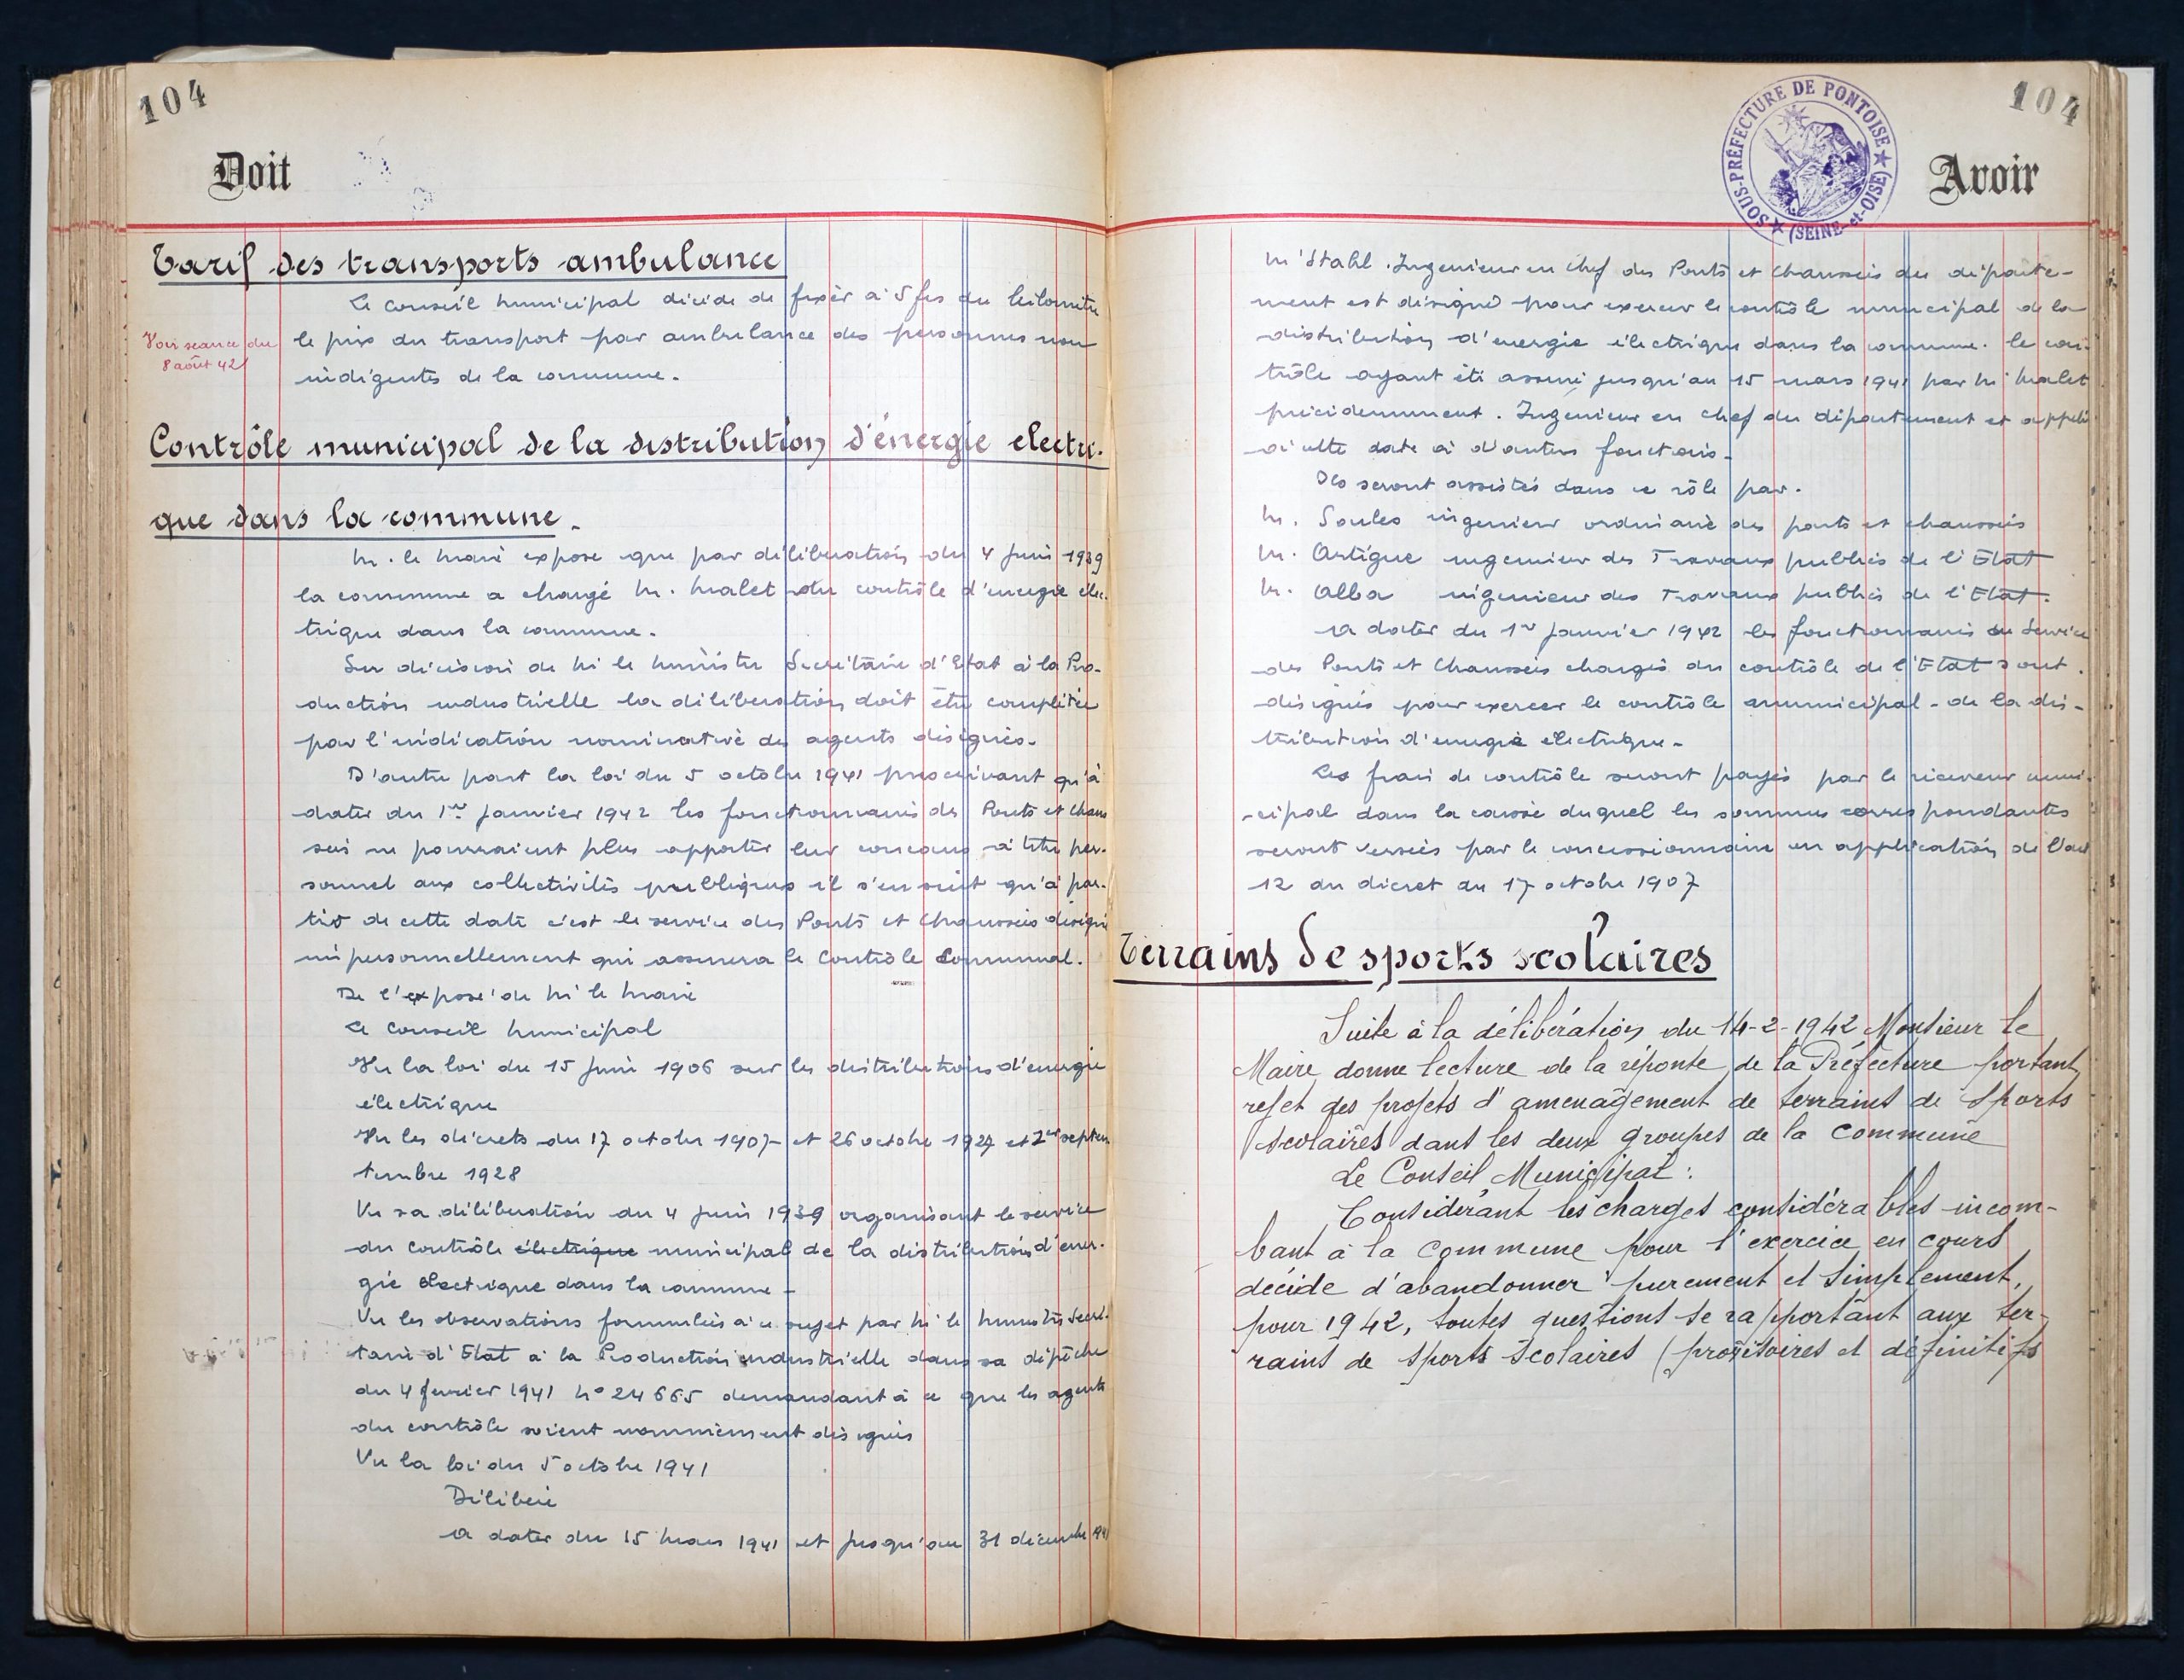 104
Doit
Tarif des transports ambulance
Le conseil municipal décide de fixer à 5 frs du kilomètre
Voir seance du
8 août 42
le prix du transport par ambulance des personnes non
indigentes de la commune.
Contrôle municipal de la distribution d'énergie electri-
que dans la commune.
M. le Maire expose que par délibération du 4 Juin 1939
la commune a chargé M. Malet du contrôle d'énergie élec-
trique dans la commune.
Sur décision de M le Ministre Secrétaire d'Etat à la Pro-
duction industrielle la délibération doit être complétée
par l'indication nominative des agents désignés.
D'autre part la loi du 5 octobre 1941 prescrivant qu'à
dater du 1er Janvier 1942 les fonctionnaires des Ponts et Chaus
sées ne pourraient plus apporter leur concours à titre per-
sonnel aux collectivités publiques il s'en suit qu'à par-
tir de cette date c'est le service des Ponts et Chaussées désigné
impersonnellement qui assurera le Contrôle Communal.
De l'exposé de M le Maire
Le Conseil Municipal
Vu la loi du 15 Juin 1906 sur les distributions d'énergie
électrique
Vu les décrets du 17 octobre 1907 et 26 octobre 1927 et 1er septem
tembre 1928
Vu sa délibération du 4 Juin 1939 organisant le service
du contrôle électrique municipal de la distribution d'éner-
gie électrique dans la commune -
Vu les observations formulées à ce sujet par M le Ministre Secré-
taire d'Etat à la Production industrielle dans sa dépêche
du 4 fevrier 1941 No 24665 demandant à ce que les agents
du contrôle soient nommément désignés
Vu la loi du 5 octobre 1941
Délibère
A dater du 15 Mars 1941 et jusqu'au 31 décembre 1941
104
SOUS-PRÉFECTURE DE PONTOISE
(SEINE-et-OISE)
Avoir
M' Stahl. Ingenieur en Chef des Ponts et Chaussées du départe-
ment est désigné pour exercer le contrôle municipal de la
distribution d'énergie électrique dans la commune. le con-
trôle ayant été assuré jusqu'au 15 mars 1941 par M Malet
précidemment. Ingénieur en chef du département et appelé
à cette date à d'autres fonctions-
Ils seront assistés dans ce rôle par.
M. Soules ingenieur ordinaire des ponts et chaussées
M. Artigue ingenieur des Travaux publics de l'Etat
M. Alba ingenieur des Travaux publics de l'Etat.
A dater du 1er Janvier 1942 les fonctionnaires du Service
des Ponts et Chaussées chargés du contrôle de l'Etat sont
désignés pour exercer le contrôle municipal - de la dis-
tribution d'énergie électrique-
Les frais de contrôle seront payés par le receveur muni-
-cipal dans la caisse duquel les sommes correspondantes
seront versées par le concessionnaire en application de l'art
12 du décret du 17 octobre 1907
Terrains de sports scolaires
Suite à la délibération du 14-2-1942 Monsieur le
Maire donne lecture de la réponse de la Préfecture portant
rejet des projets d'aménagement de terrains de sports
scolaires dans les deux groupes de la commune
Le Conseil Municipal :
Considérant les charges considérables incom-
bant à la Commune pour l'exercice en cours
décide d'abandonner purement et simplement,
pour 1942, toutes questions se rapportant aux ter-
rains de sports scolaires (provisoires et définitifs